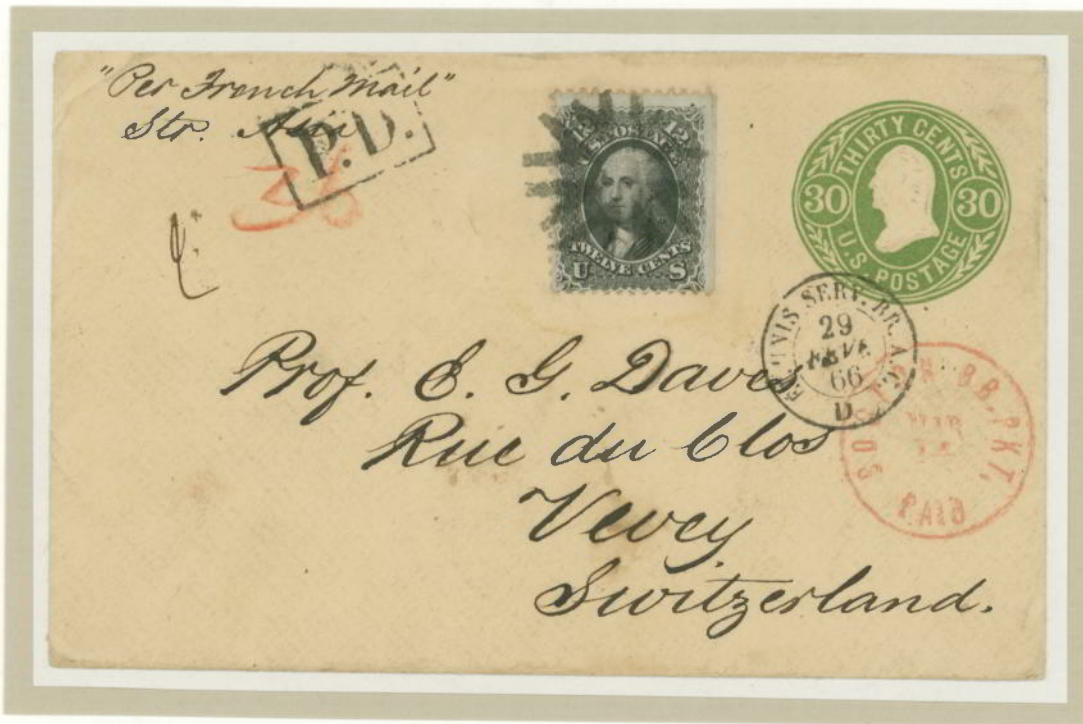 "Per French Mail"
Str. Asia
P.D.
12
U.S. POSTAGE
TWELVE CENTS
U S
THIRTY CENTS
30 30
U.S. POSTAGE
SERV. BR. A.C.
29
66
D
BOSTON BR. PKT.
MAR
PAID
Prof. E. G. Daves
Rue du Clos
Vevey
Switzerland.